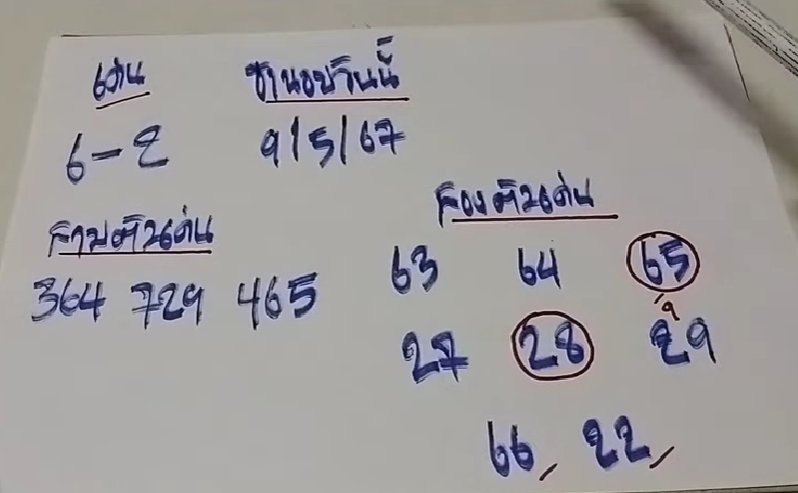 เด่น ฮานอยวันนี้
6-2 9/5/67
สามตัวเด่น
364 729 465
สองตัวเด่น
63 64 65
27 28 29
66, 22,